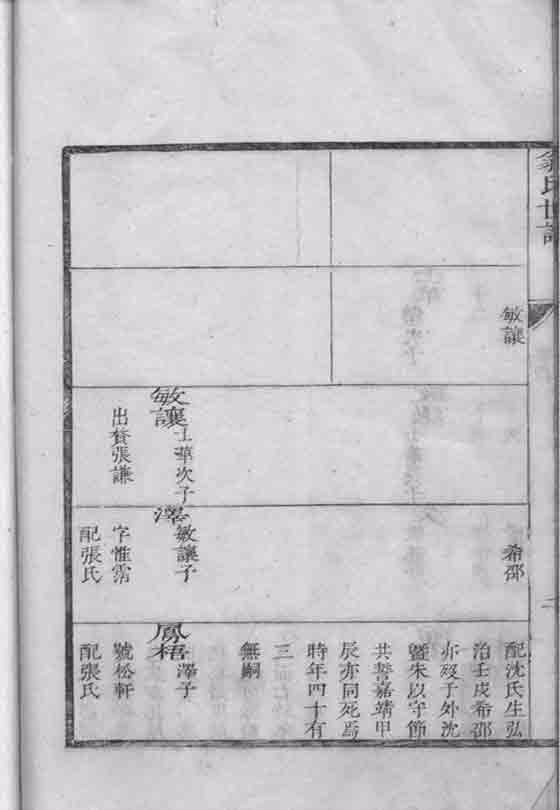 翁氏世譜
敏讓
敏讓
士華次子
出贅張謙
希邵
澤
敏讓子
字惟霑
配張氏
配沈氏生弘
治壬戌希邵
亦歿于外沈
曁朱以守節
共誓嘉靖甲
辰亦同死焉
時年四十有
三
無嗣
鳳梧
澤子
號松軒
配張氏